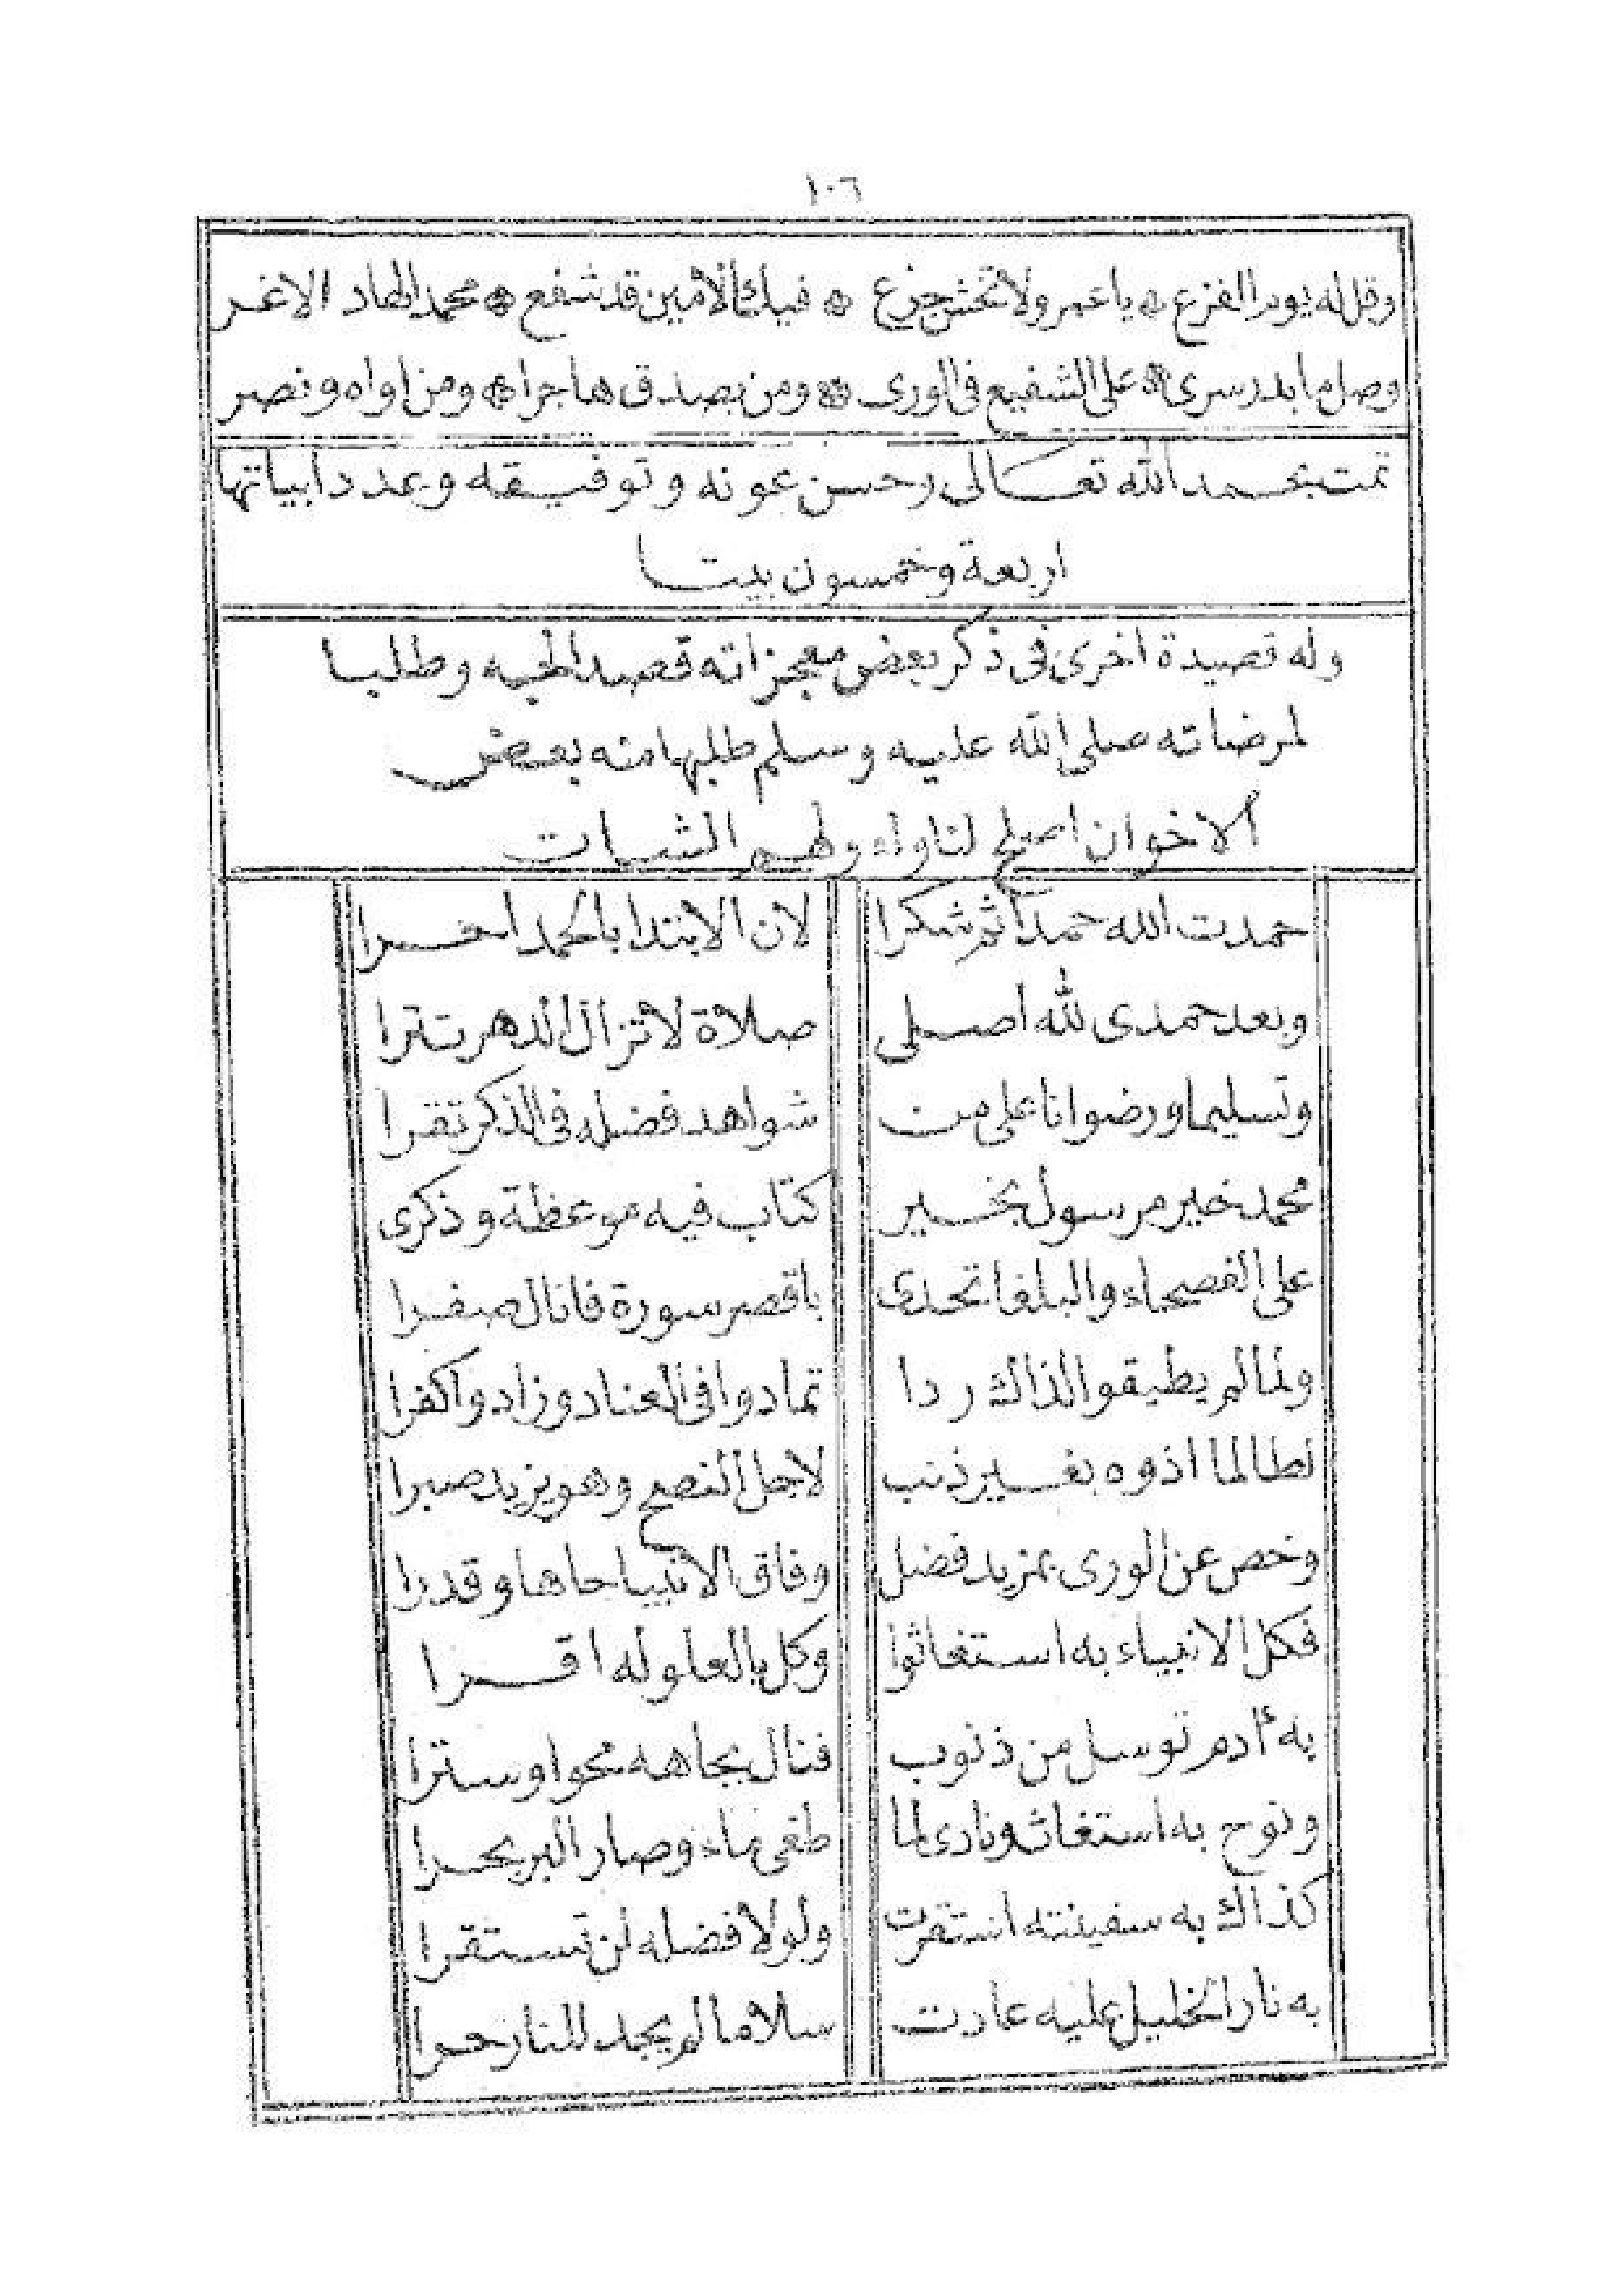 ١٠٦
وقل له يوم الفزع * يا عمر ولا تخش جزع * فيك الأمين قد شفع * محمد الهاد الاغر
وصل ما بدر سرى * على الشفيع فى الورى * ومن بصدق هاجرا * ومن اواه ونصر
تمت بحمد الله تعالى وحسن عونه وتوفيقه وعدد ابياتها
اربعة وخمسون بيتا
وله قصيدة اخرى فى ذكر بعض معجزاته قصد المحبه وطلبا
لمرضاته صلى الله عليه وسلم طلبها منه بعض
الاخوان اصلح لنا وله ولهم الشبات
حمدت الله حمدا ثم شكرا لان الابتدا بالحمد احرا
وبعد حمدى لله اصلى صلاة لا تزال الدهر تترا
وتسليما ورضوانا على من شواهد فضله فى الذكر تقرا
محمد خير مرسول بخير كتاب فيه موعظة وذكرى
على الفصحاء والبلغا تحدى باقصر سورة فانال صفرا
ولما لم يطيقوا لذالك ردا تمادوا فى العناد وزادوا كفرا
لطالما اذوه بغير ذنب لاجل النصح وهو يزيد صبرا
وخص عن الورى بمزيد فضل وفاق الانبيا جاها وقدرا
فكل الانبياء به استغاثوا وكل بالعلو له اقرا
به ءادم توسل من ذنوب فنال بجاهه محوا وسترا
ونوح به استغاث ونادى لما طغى ماء وصار البر بحرا
كذاك به سفينته استقرت ولولا فضله لن تستقرا
به نار الخليل عليه عادت سلاما لم يجد للنار حرا